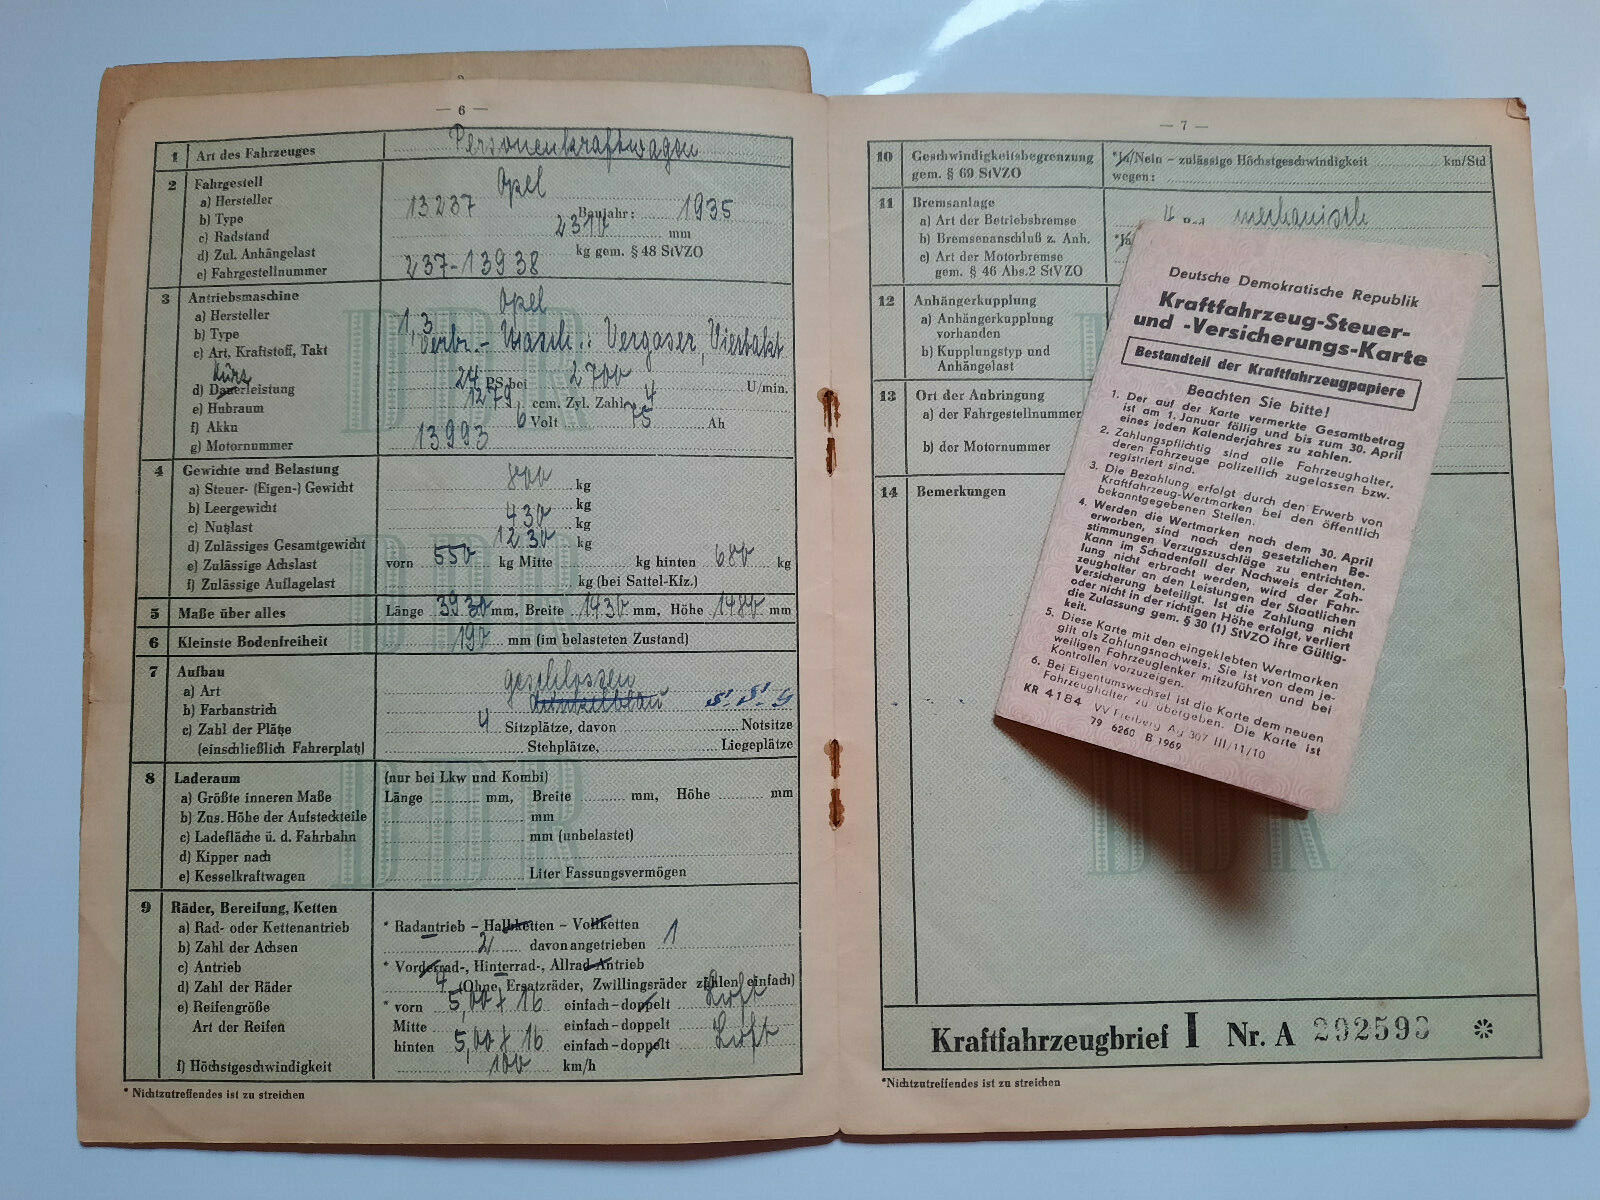 — 6 —
1 Art des Fahrzeuges Personenkraftwagen
2 Fahrgestell
a) Hersteller Opel
b) Type 13237 Baujahr: 1935
c) Radstand 2310 mm
d) Zul. Anhängelast kg gem. § 48 StVZO
e) Fahrgestellnummer 237-13938
3 Antriebsmaschine
a) Hersteller Opel
b) Type 1,3
c) Art, Kraftstoff, Takt Verbr.- Masch.: Vergaser, Viertakt
Kurz
d) Dauerleistung 24 PS bei 2700 U/min.
e) Hubraum 1279 ccm. Zyl. Zahl 4
f) Akku 6 Volt 75 Ah
g) Motornummer 13993
4 Gewichte und Belastung
a) Steuer- (Eigen-) Gewicht 800 kg
b) Leergewicht kg
c) Nutzlast 430 kg
d) Zulässiges Gesamtgewicht 1230 kg
e) Zulässige Achslast vorn 550 kg Mitte kg hinten 680 kg
f) Zulässige Auflagelast kg (bei Sattel-Kfz.)
5 Maße über alles Länge 3930 mm, Breite 1430 mm, Höhe 1480 mm
6 Kleinste Bodenfreiheit 190 mm (im belasteten Zustand)
7 Aufbau
a) Art geschlossen
b) Farbanstrich dunkelblau
c) Zahl der Plätze 4 Sitzplätze, davon Notsitze
(einschließlich Fahrerplatz) Stehplätze, Liegeplätze
8 Laderaum (nur bei Lkw und Kombi)
a) Größte inneren Maße Länge mm, Breite mm, Höhe mm
b) Zus. Höhe der Aufsteckteile mm
c) Ladefläche ü. d. Fahrbahn mm (unbelastet)
d) Kipper nach
e) Kesselkraftwagen Liter Fassungsvermögen
9 Räder, Bereifung, Ketten
a) Rad- oder Kettenantrieb * Radantrieb – Halbketten – Vollketten
b) Zahl der Achsen 2 davon angetrieben 1
c) Antrieb * Vorderrad-, Hinterrad-, Allrad-Antrieb
d) Zahl der Räder 4 (Ohne Ersatzräder, Zwillingsräder zählen einfach)
e) Reifengröße * vorn 5,00 x 16 einfach – doppelt Luft
Art der Reifen Mitte einfach – doppelt
hinten 5,00 x 16 einfach – doppelt Luft
f) Höchstgeschwindigkeit 100 km/h
* Nichtzutreffendes ist zu streichen
— 7 —
10 Geschwindigkeitsbegrenzung *Ja/Nein – zulässige Höchstgeschwindigkeit km/Std
gem. § 69 StVZO wegen:
11 Bremsanlage
a) Art der Betriebsbremse 4 Rad mechanisch
b) Bremsenanschluß z. Anh. *Ja
c) Art der Motorbremse
gem. § 46 Abs.2 StVZO
12 Anhängerkupplung
a) Anhängerkupplung
vorhanden
b) Kupplungstyp und
Anhängelast
13 Ort der Anbringung
a) der Fahrgestellnummer
b) der Motornummer
14 Bemerkungen
Kraftfahrzeugbrief I Nr. A 292590
*Nichtzutreffendes ist zu streichen
Deutsche Demokratische Republik
Kraftfahrzeug-Steuer-
und -Versicherungs-Karte
Bestandteil der Kraftfahrzeugpapiere
Beachten Sie bitte!
1. Der auf der Karte vermerkte Gesamtbetrag
ist am 1. Januar fällig und bis zum 30. April
eines jeden Kalenderjahres zu zahlen.
2. Zahlungspflichtig sind alle Fahrzeughalter,
deren Fahrzeuge polizeilich zugelassen bzw.
registriert sind.
3. Die Bezahlung erfolgt durch den Erwerb von
Kraftfahrzeug-Wertmarken bei den öffentlich
bekanntgegebenen Stellen.
4. Werden die Wertmarken nach dem 30. April
erworben, sind nach den gesetzlichen Be-
stimmungen Verzugszuschläge zu entrichten.
Kann im Schadenfall der Nachweis der Zah-
lung nicht erbracht werden, wird der Fahr-
zeughalter an den Leistungen der Staatlichen
Versicherung beteiligt. Ist die Zahlung nicht
oder nicht in der richtigen Höhe erfolgt, verliert
die Zulassung gem. § 30 (1) StVZO ihre Gültig-
keit.
5. Diese Karte mit den eingeklebten Wertmarken
gilt als Zahlungsnachweis. Sie ist von dem je-
weiligen Fahrzeuglenker mitzuführen und bei
Kontrollen vorzuzeigen.
6. Bei Eigentumswechsel ist die Karte dem neuen
Fahrzeughalter zu übergeben. Die Karte ist
KR 4184 VV Freiberg Ag 307 III/11/10
79 6260 B 1969